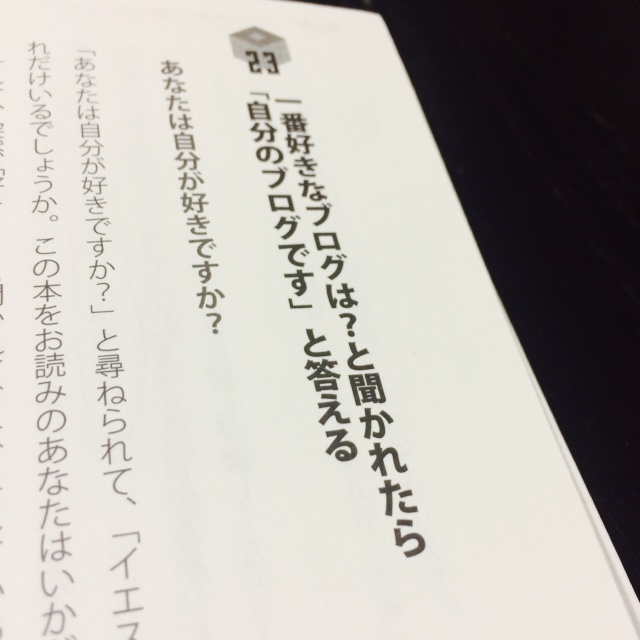 一番好きなブログは?と聞かれたら
「自分のブログです」と答える
あなたは自分が好きですか?
「あなたは自分が好きですか?」と尋ねられて、「イエス
れだけいるでしょうか。この本をお読みのあなたはいかが